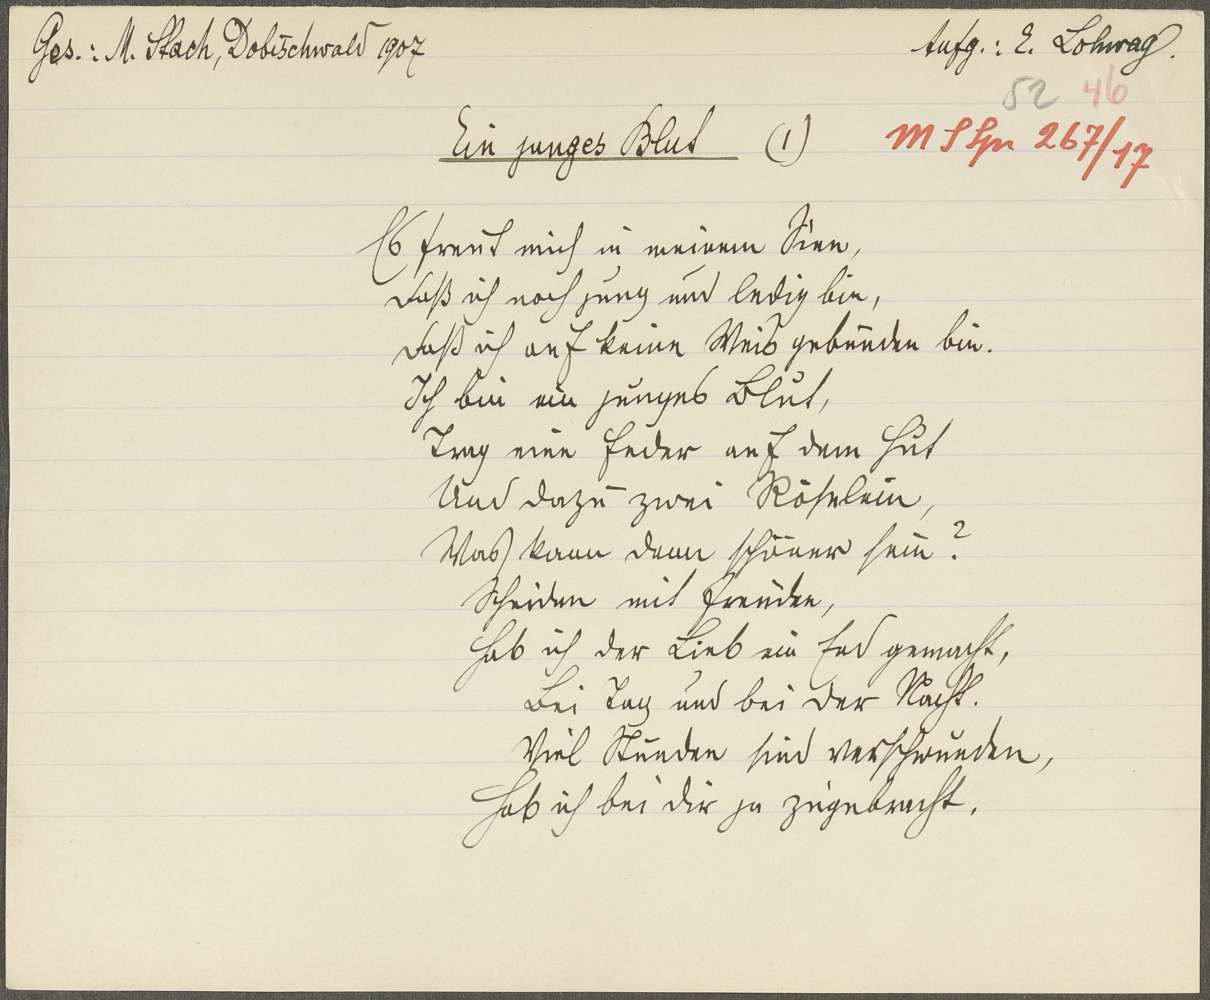 Ges.: M. Stach, Dobischwald 1907
Aufg.: E. Lohwag.
52 46
Ein junges Blut (1)
M S Spr 267/17
Es freut mich in meinem Sinn,
Daß ich noch jung und ledig bin,
Daß ich auf keine Weis gebunden bin.
Ich bin ein junges Blut,
Trag eine Feder auf dem Hut
Und dazu zwei Röselein,
Was kann denn schöner sein?
Scheiden mit Freuden,
Hab ich der Lieb ein End gemacht,
Bei Tag und bei der Nacht.
Viel Stunden sind verschwunden,
Hab ich bei dir ja zugebracht.